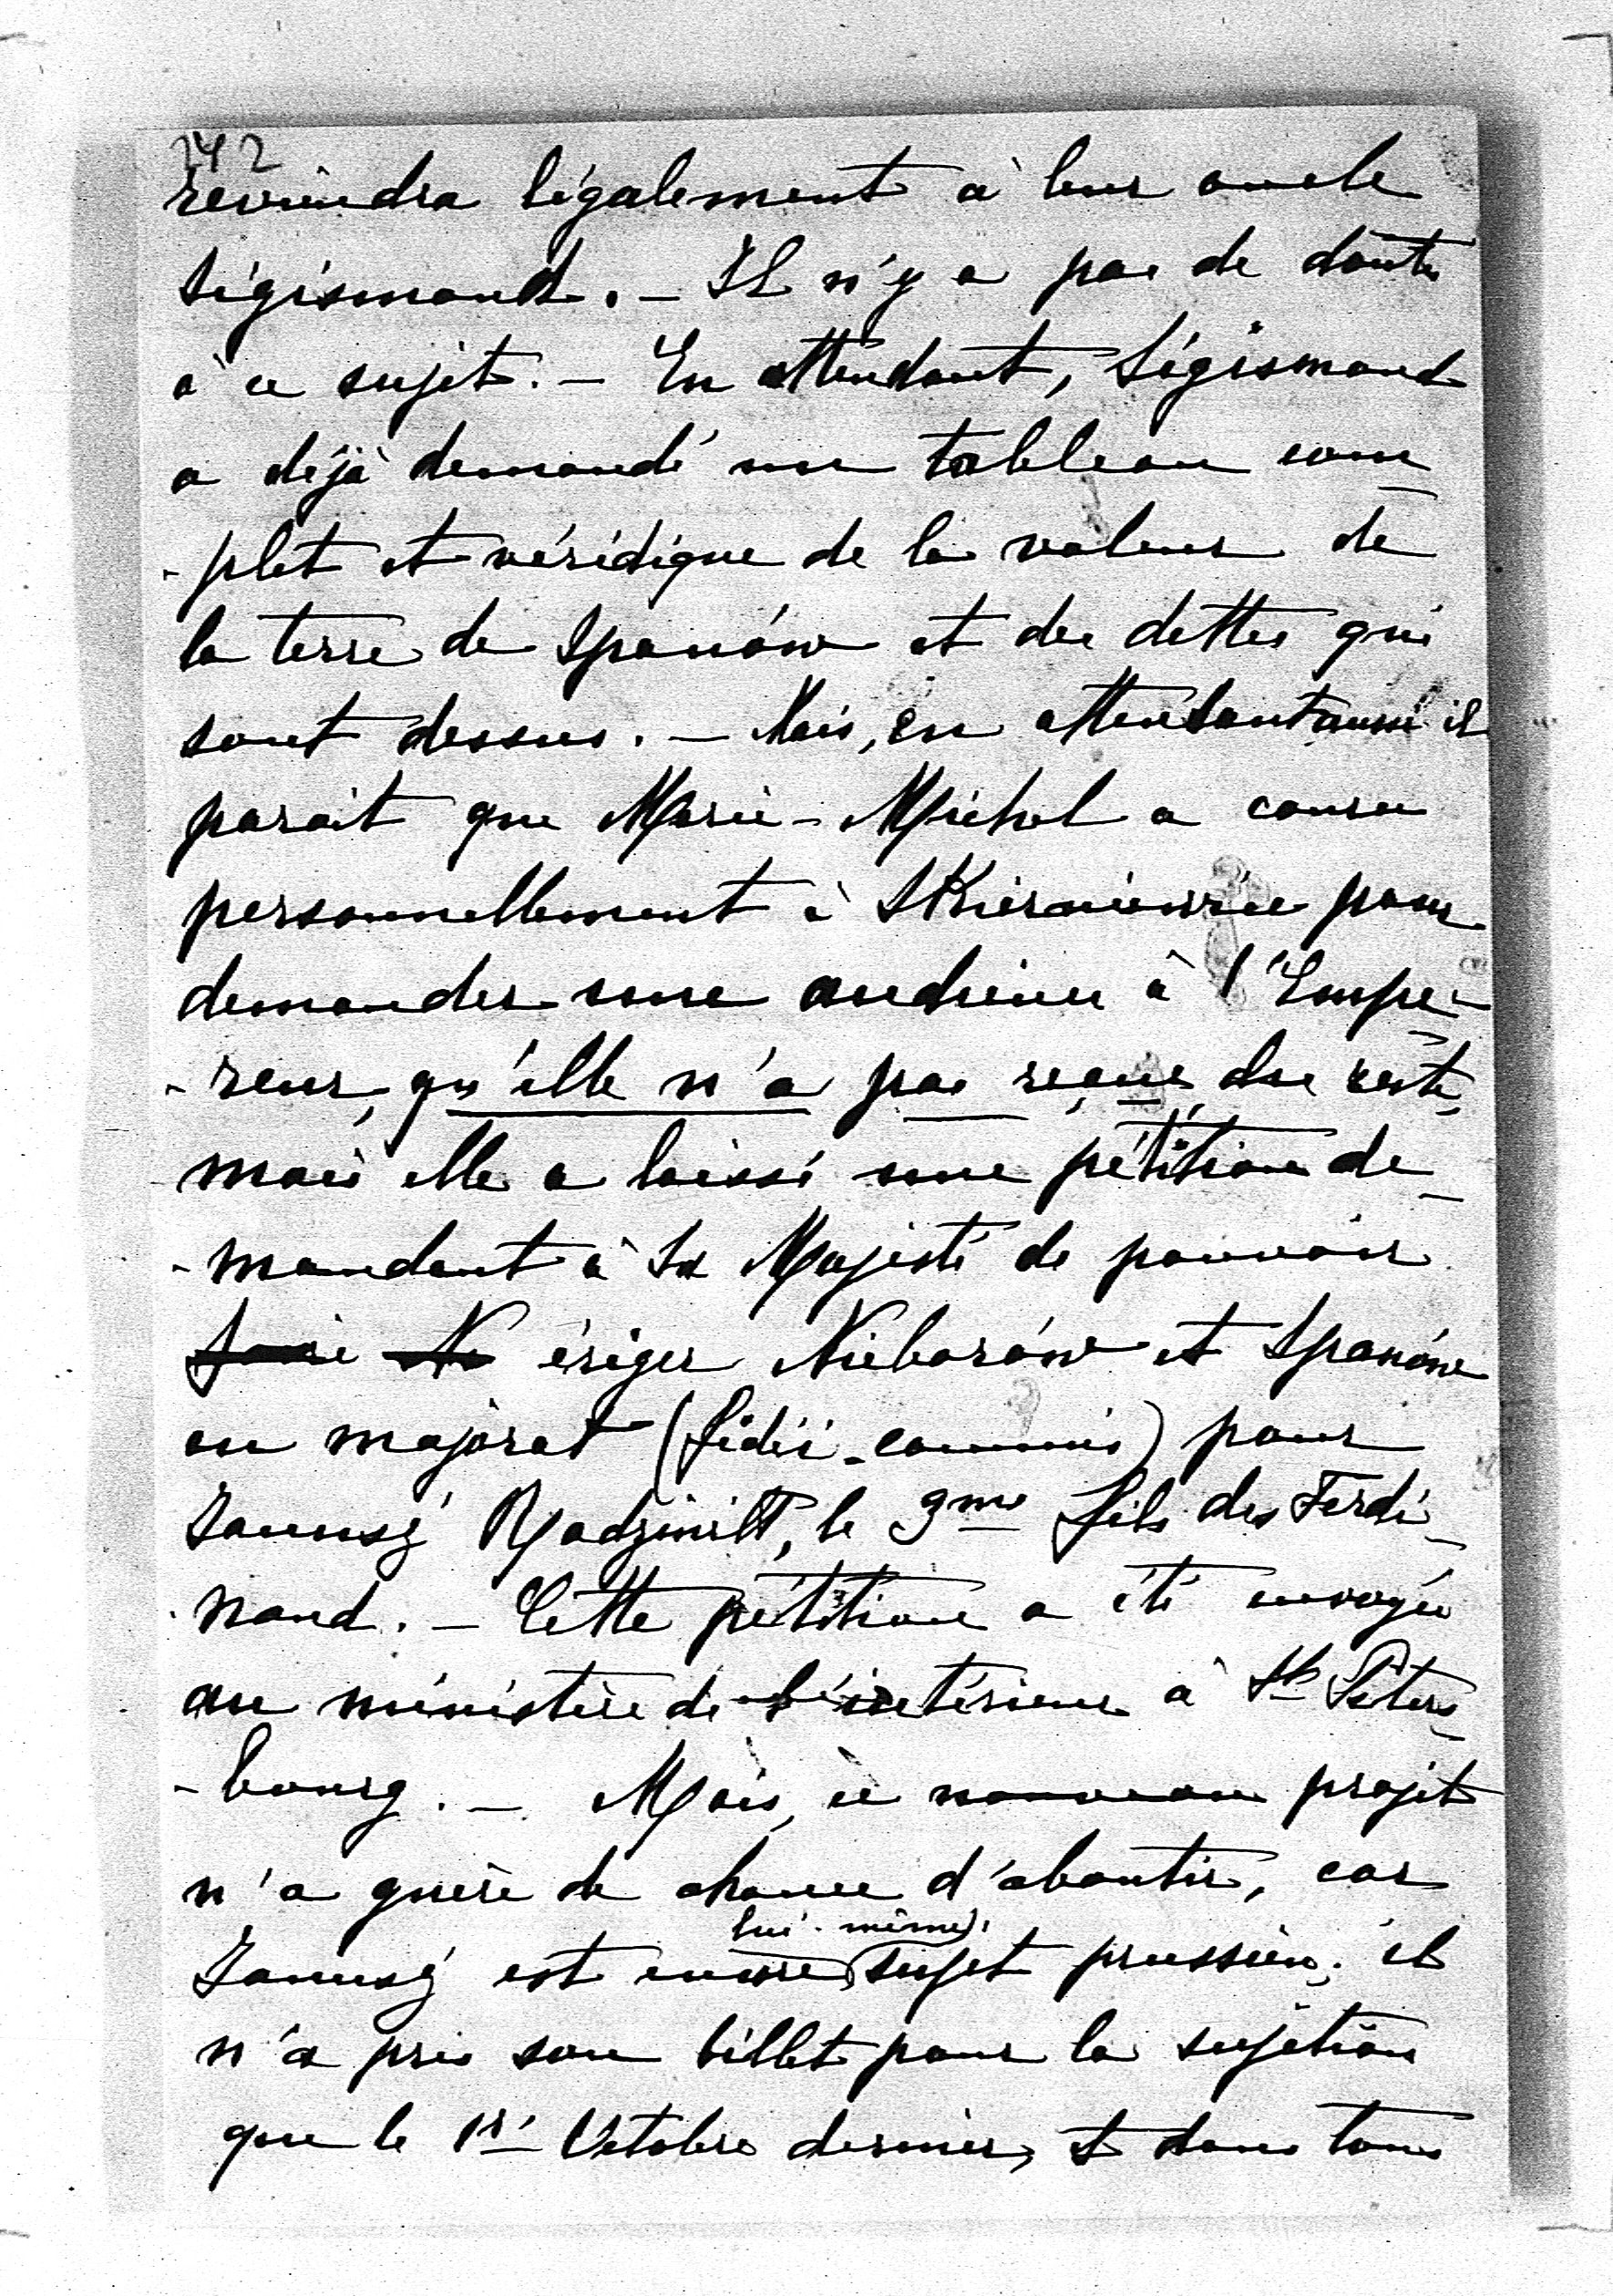 242
reviendra légalement à leur oncle
Sigismond. – Il n'y a pas de doute
à ce sujet. – En attendant, Sigismond
a déjà demandé un tableau com-
-plet et véridique de la valeur de
la terre de Spanów et des dettes qui
sont dessus. – Mais, en attendant aussi il
parait que Marie-Michel a couru
personnellement à Skierniewice pour
demander une audience à l'Empe-
-reur, qu'elle n'a pas reçue, du reste,
mais elle a laissé une pétition de-
-mandant à Sa Majesté de pouvoir
ériger Nieborów et Spanów
en majorat (fidéi-commis) pour
Janusz Radziwiłł, le 3me fils des Ferdi-
nand. – Cette pétition a été envoyée
au ministère de l'intérieur à St Péters-
-bourg. – Mais, ce nouveau projet
n'a guère de chance d'aboutir, car
Janusz est encore lui-même sujet prussien; il
n'a pris son billet pour la sujétion
que le 1r Octobre dernier, et dans tous